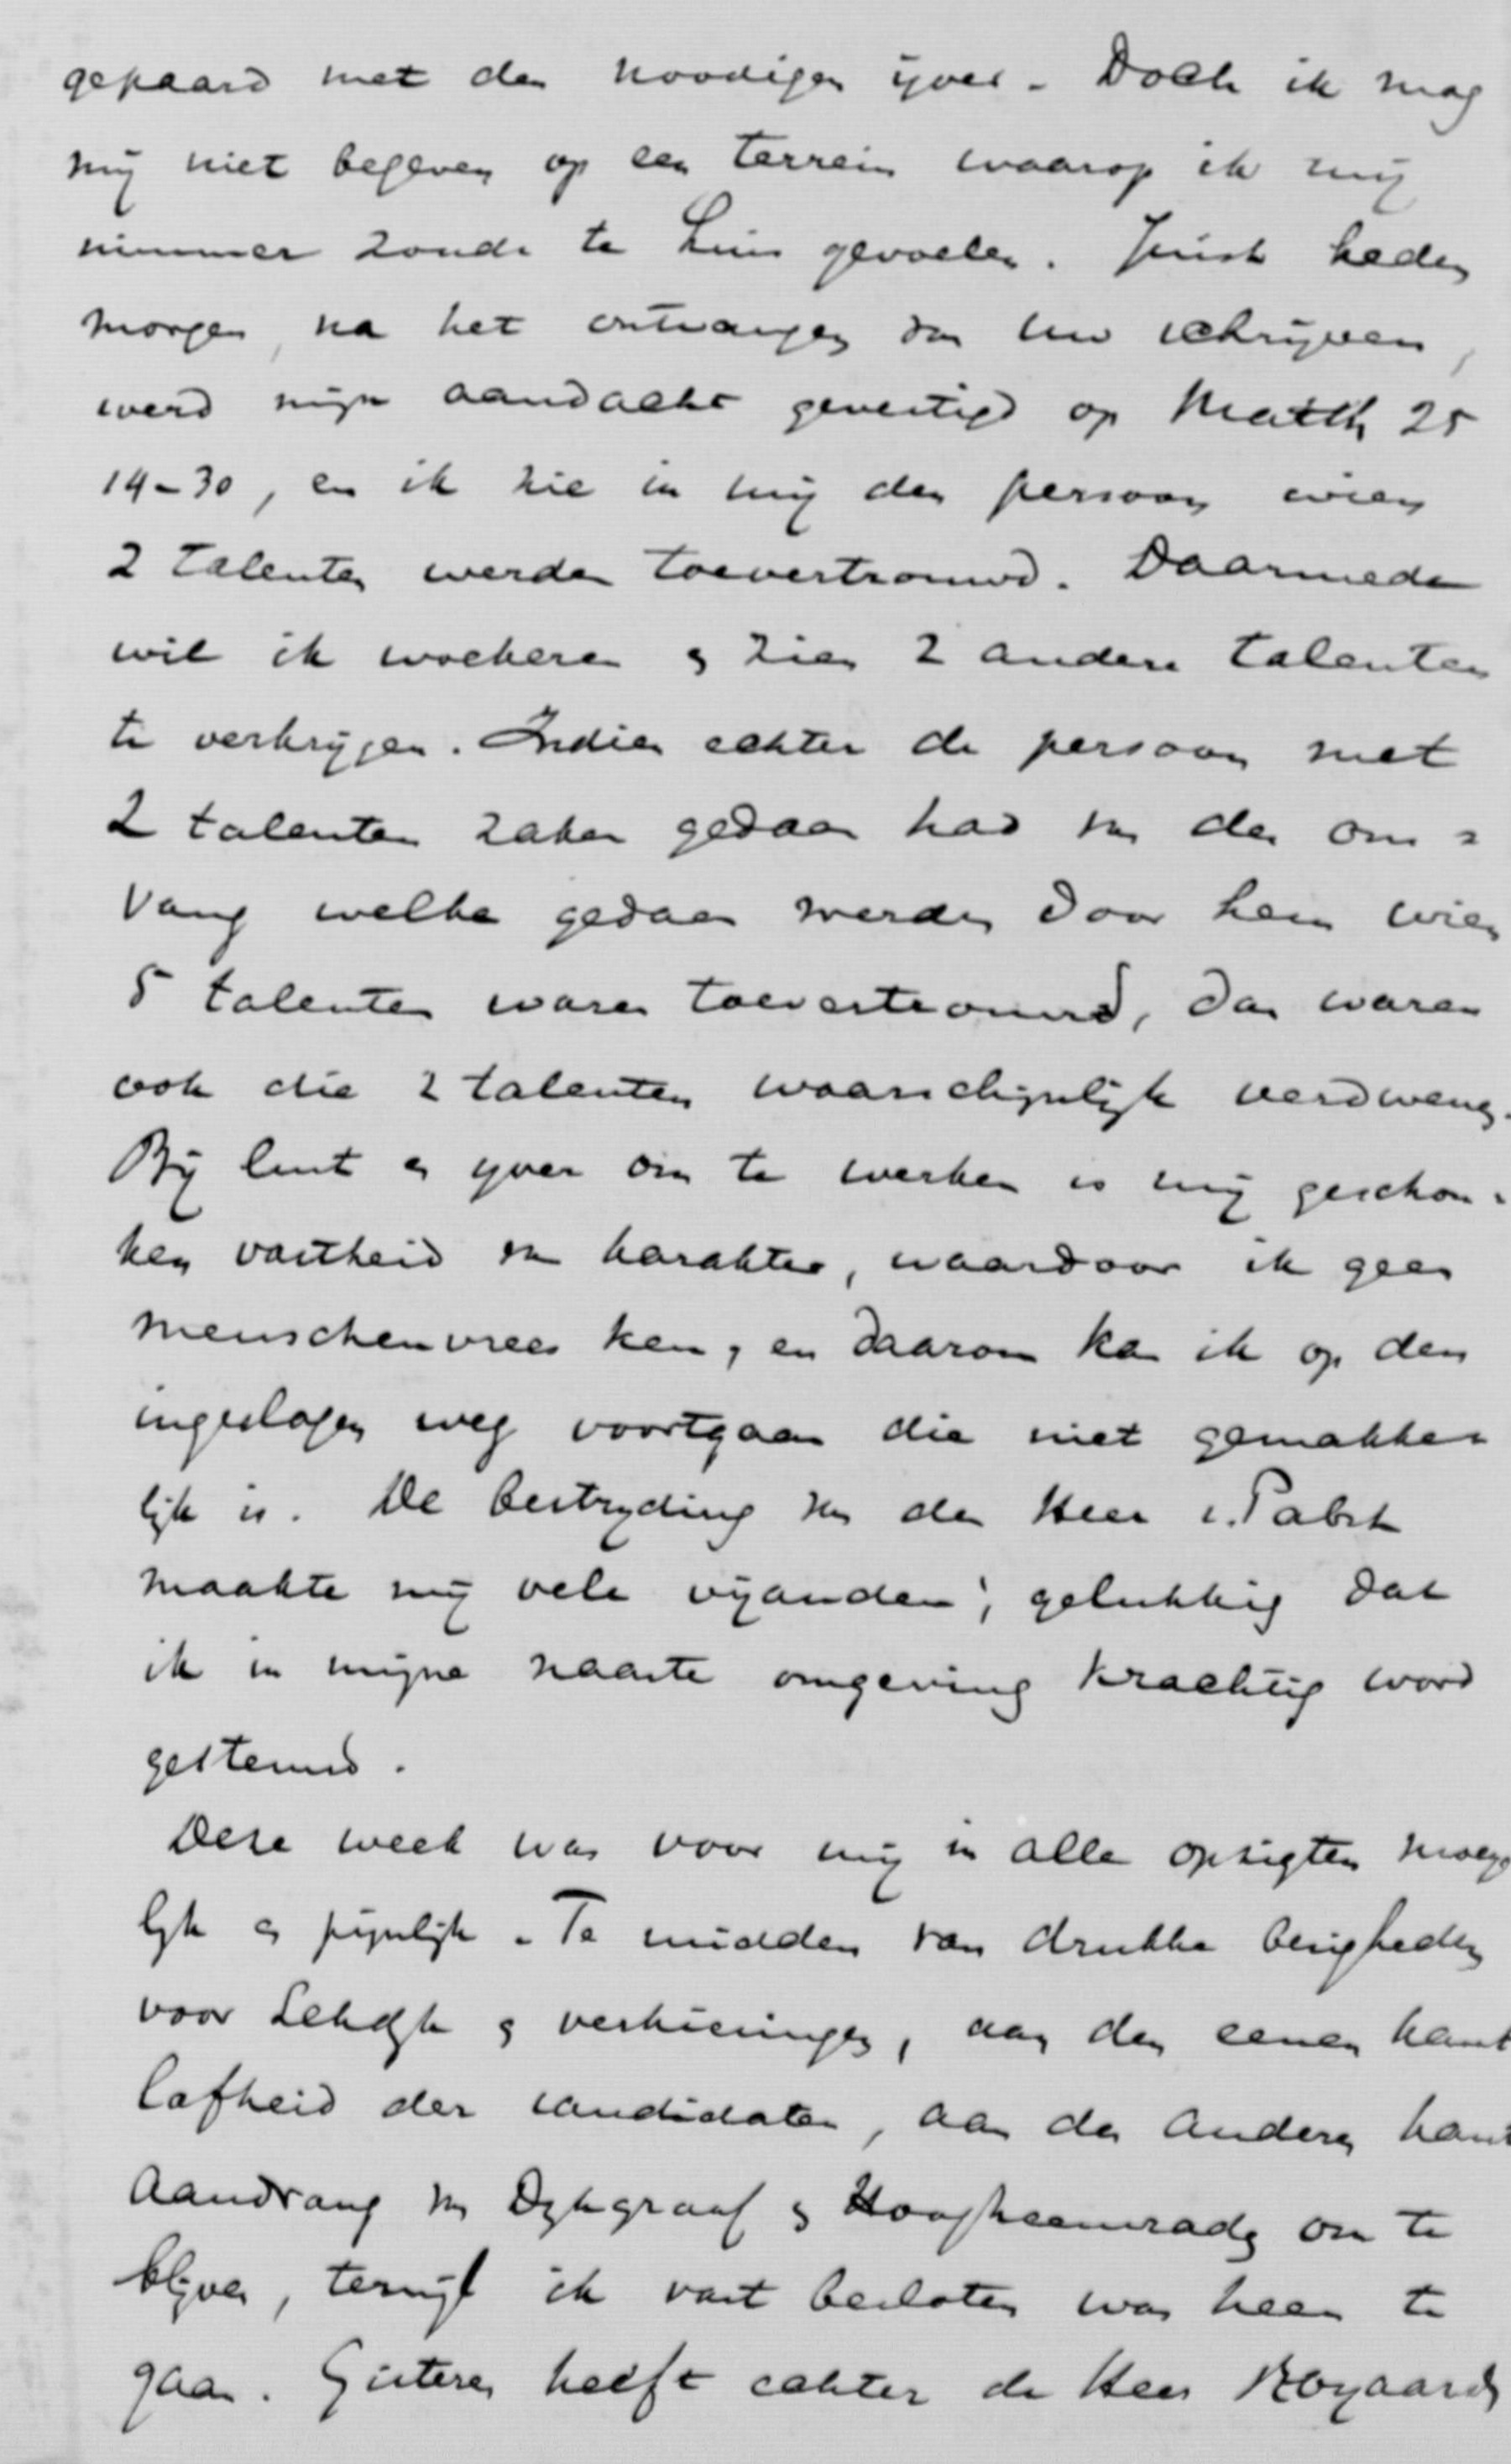 gepaard met den noodigen ijver. Doch ik mag
mij niet begeven op een terrein waarop ik mij
nimmer zoude te huis gevoelen. Juist heden
morgen, na het ontvangen van Uw schrijven,
werd mijn aandacht gevestigd op Matth 25
14-30, en ik zie in mij den persoon wien
2 talenten werden toevertrouwd. Daarmede
wil ik woekeren & zien 2 andere talenten
te verkrijgen. Indien echter de persoon met
2 talenten zaken gedaan had van den om-
vang welke gedaan werden door hem wien
5 talenten waren toevertrouwd, dan waren
ook die 2 talenten waarschijnlijk verdwenen.
Bij lust en ijver om te werken is mij geschon-
ken vastheid van karakter, waardoor ik geen
menschenvrees ken, en daarom kan ik op den
ingeslagen weg voortgaan die niet gemakke-
lijk is. De bestrijding van den Heer v. Pabst
maakte mij vele vijanden; gelukkig dat
ik in mijne naaste omgeving krachtig word
gesteund.
Deze week was voor mij in alle opzigten moeye
lijk en pijnlijk. Te midden van drukke bezigheden
voor & verkiezingen, aan den eenen kant
lafheid der candidaten, aan den anderen kant
aandrang van Dijkgraaf & Hoogheemraden om te
blijven, terwijl ik vast besloten was heen te
gaan. Gisteren heeft echter de Heer Royaards